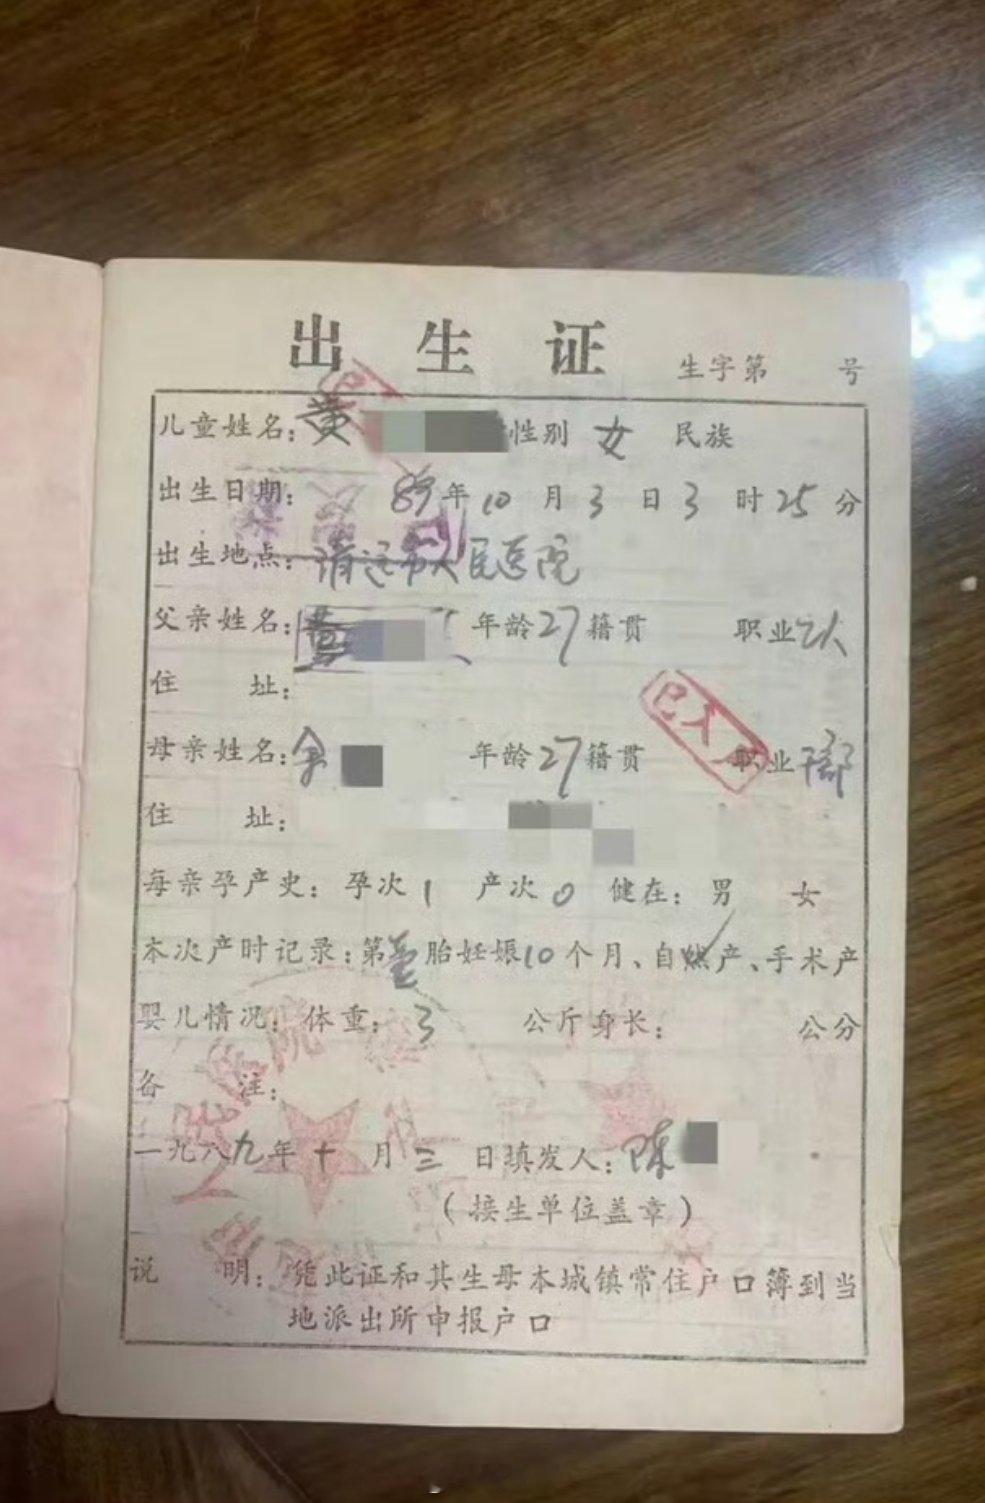 出生证 生字第 号
儿童姓名：黄 性别 女 民族
出生日期： 89年10月3日3时25分
出生地点：清远市人民医院
父亲姓名： 年龄27籍贯 职业
住 址：
已入
母亲姓名：余 年龄27籍贯 职业干部
住 址：
母亲孕产史：孕次1 产次0 健在：男 女
本次产时记录：第壹胎妊娠10个月、自然产、手术产
婴儿情况：体重：3 公斤身长： 公分
备 注：
一九八九年十月三日填发人：陈
（接生单位盖章）
说 明：凭此证和其生母本城镇常住户口簿到当
地派出所申报户口